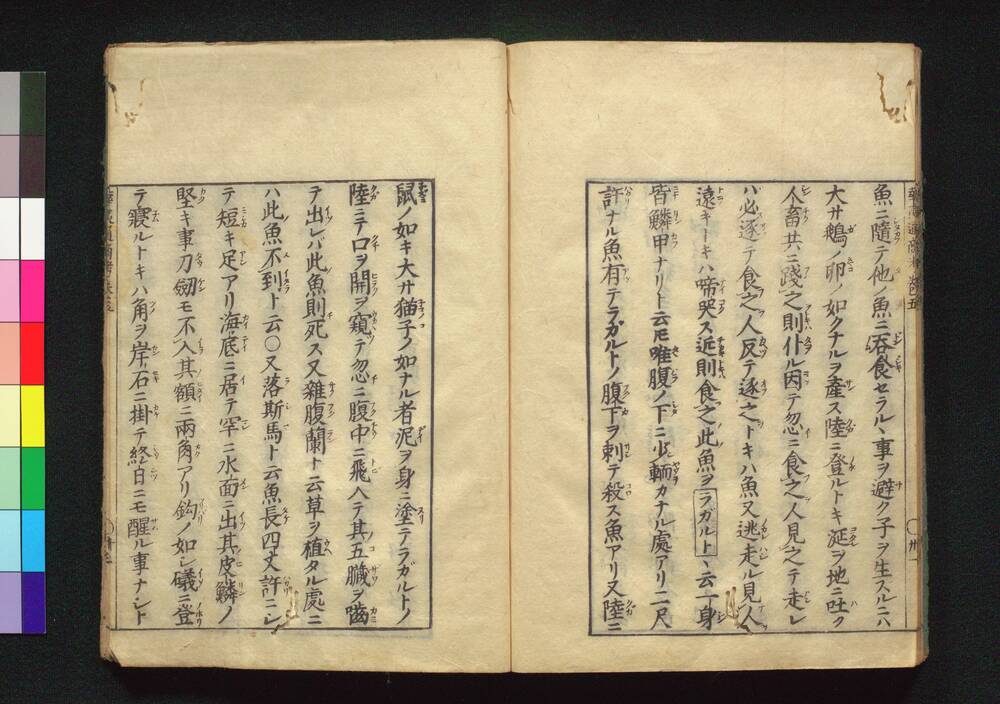 魚ニ隨テ他ノ魚ニ呑食セラルヽ事ヲ避ク子ヲ生スルニハ
大サ鵝ノ卵ノ如クナルヲ產ス陸ニ登ルトキ涎ヲ地ニ吐ク
人畜共ニ踐之則仆ル因テ忽ニ食之人見之テ走レ
ハ必逐テ食之人反テ逐之トキハ魚又逃走ル見人
遠キトキハ啼哭ス近則食之此魚ヲラガルトヽ云一身
皆鱗甲ナリト云𪜈唯腹ノ下ニ少輭カナル處アリ二尺
許ナル魚有テラガルトノ腹下ヲ刺テ殺ス魚アリ又陸ニ
鼠ノ如キ大サ猫子ノ如ナル者泥ヲ身ニ塗テラガルトノ
陸ニテ口ヲ開ヲ窺テ忽ニ腹中ニ飛入テ其五臟ヲ嚙
ヲ出レバ此魚則死ス又雜腹蘭ト云草ヲ植タル處ニ
ハ此魚不到ト云〇又落斯馬ト云魚長四丈許ニシ
テ短キ足アリ海底ニ居テ罕ニ水面ニ出其皮鱗ノ
堅キ事刀劔モ不入其額ニ兩角アリ鈎ノ如シ礒ニ登
テ寢ルトキハ角ヲ岸石ニ掛テ終日ニモ醒ル事ナシト